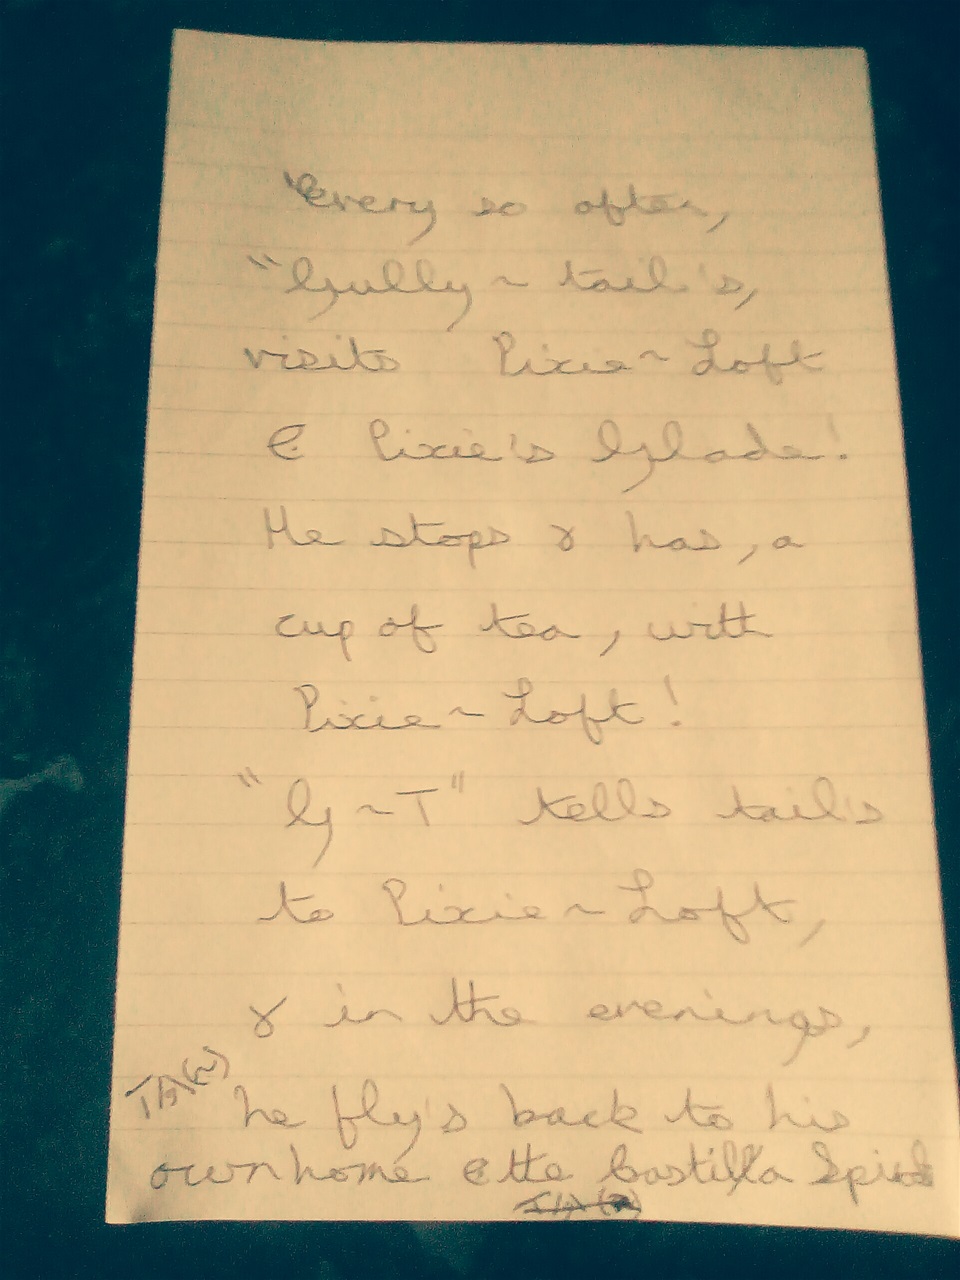 "Every so often,
"Gully ~ tail's,
visits Pixie ~ Loft
@ Pixie's Glade!
He stops & has, a
cup of tea, with
Pixie ~ Loft!
"G ~ T" tells tail's
to Pixie ~ Loft,
& in the evenings,
he fly's back to his
own home @ the